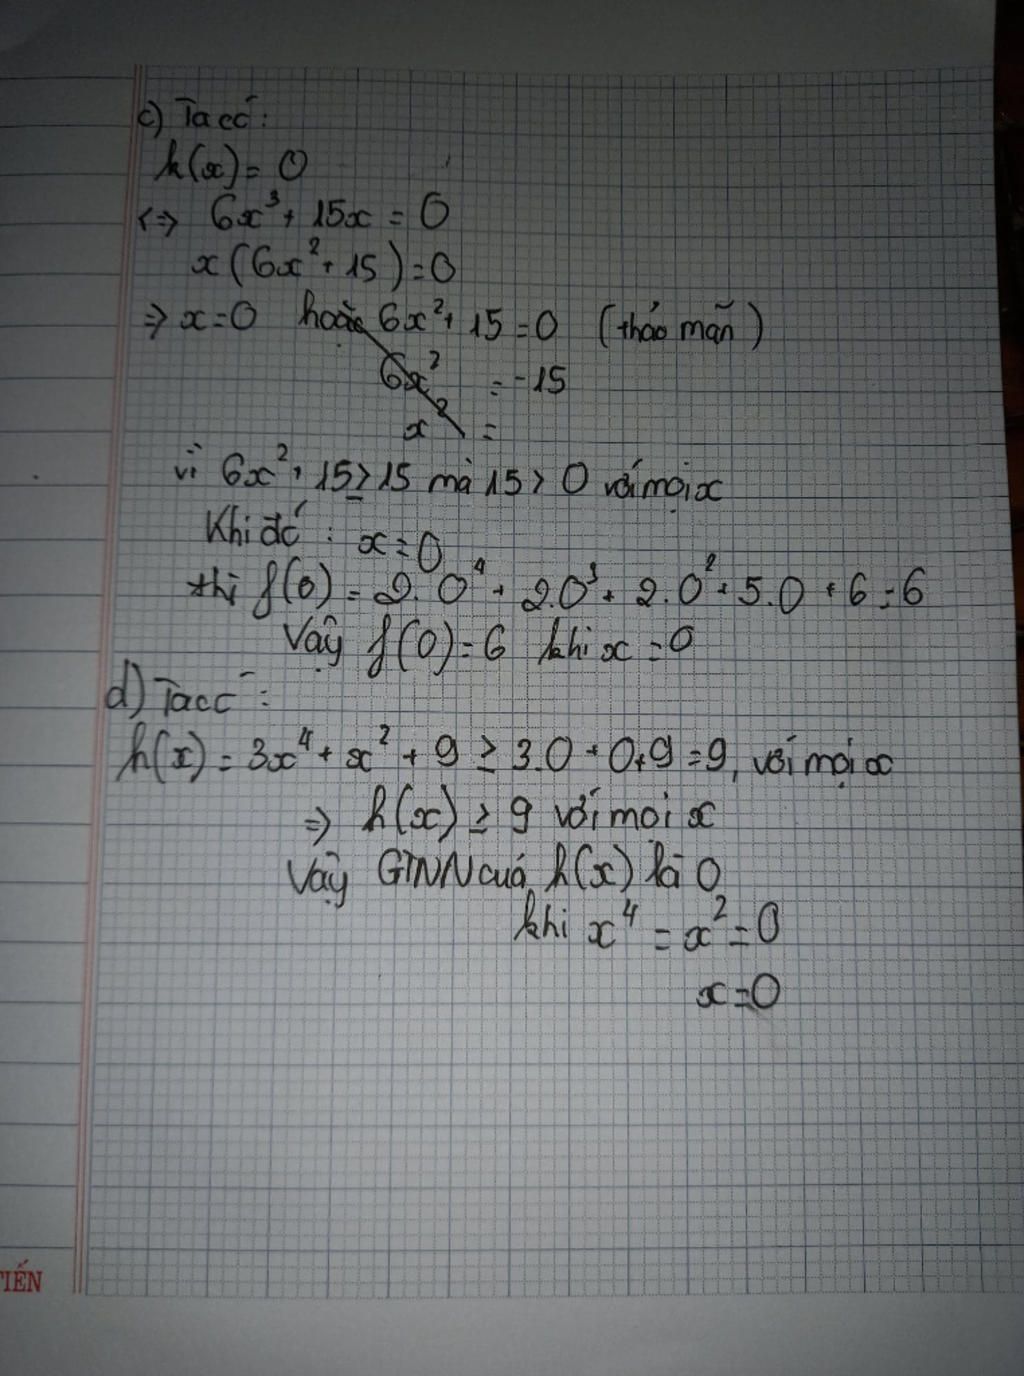 c) Ta có :
k(x) = 0
<=> 6x³ + 15x = 0
x(6x² + 15) = 0
=> x=0 hoặc 6x² + 15 = 0 (thỏa mãn)
6x² = -15
x² =
vì 6x² + 15 ≥ 15 mà 15 > 0 với mọi x
Khi đó : x = 0
thì f(0) = 2.0⁴ + 2.0³ + 2.0² + 5.0 + 6 = 6
Vậy f(0) = 6 khi x = 0
d) Ta có :
h(x) = 3x⁴ + x² + 9 ≥ 3.0 + 0+9 = 9, với mọi x
=> h(x) ≥ 9 với mọi x
Vậy GTNN của h(x) là 0
khi x⁴ = x² = 0
x = 0
TIẾN